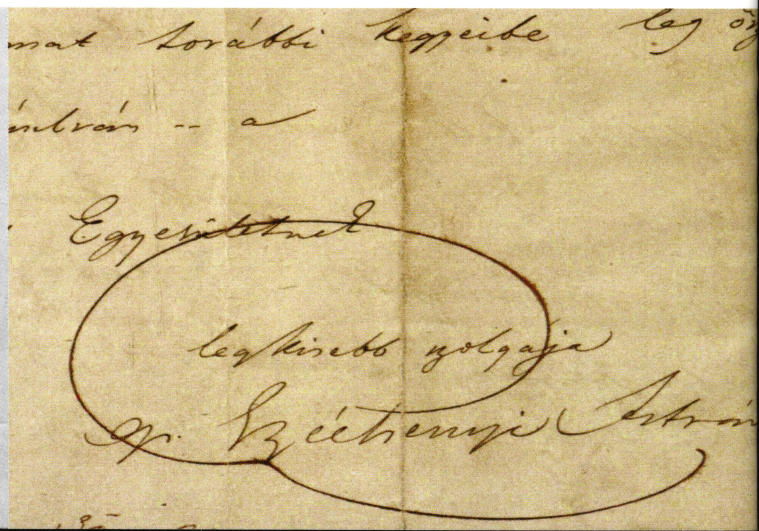 további kegyeibe leg
-- a
Egyesületnek
legkisebb szolgája
gr. Széchenyi István